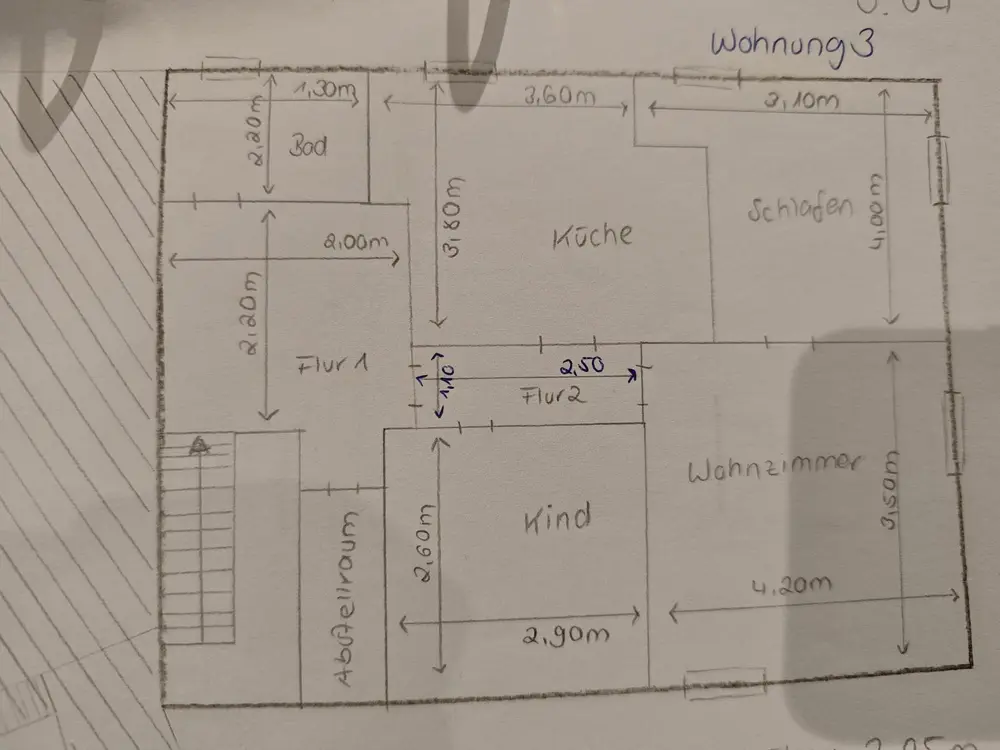 Wohnung 3
1,30m
3,60m
3,10m
2,20m
Bad
3,80m
Küche
Schlafen
4,00m
2,00m
2,20m
Flur 1
1,10
2,50
Flur 2
Wohnzimmer
3,50m
Kind
2,60m
Abstellraum
4,20m
2,90m